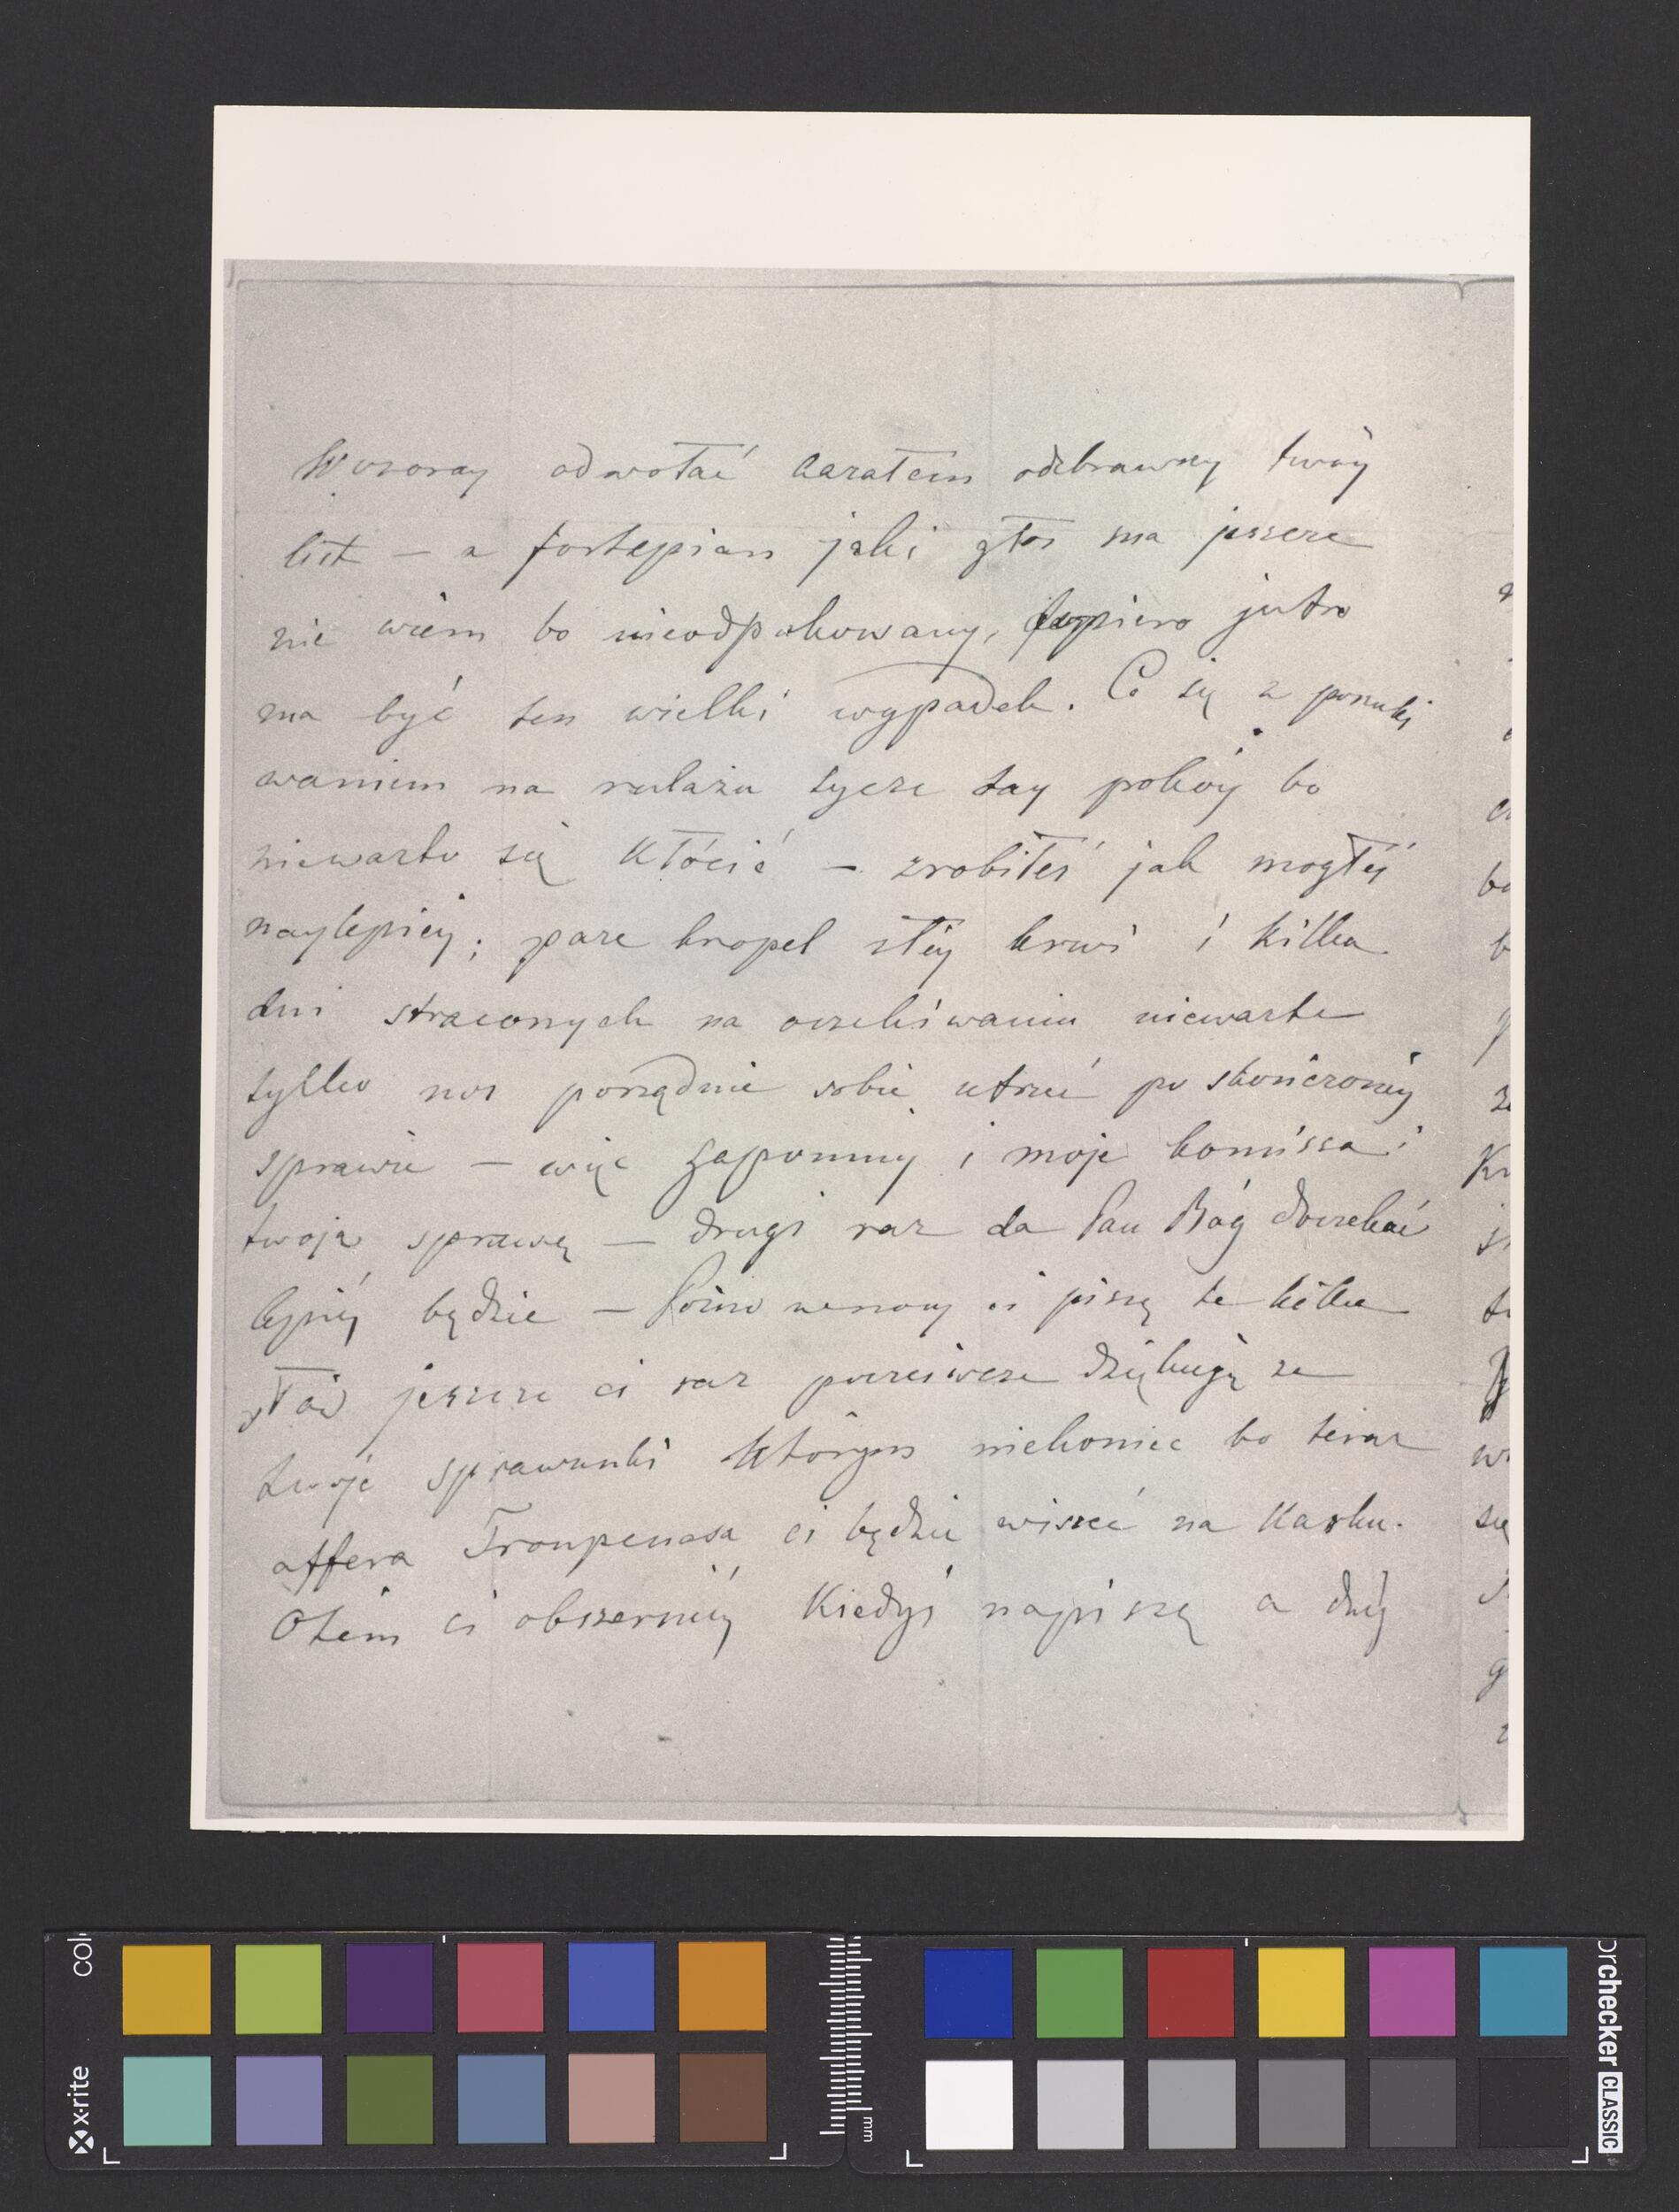 Wczoray odwołać kazałem odebrawszy twóy
list — a fortepian jaki głos ma jeszcze
nie wiem bo nieodpakowany, dopiero jutro
ma być ten wielki wypadek. Co się z poszuki
waniem na rulażu tycze day pokóy bo
niewarto się kłócić — zrobiłeś jak mogłeś
naylepiéy; pare kropel złéy krwi i kilka
dni straconych na oczekiwaniu niewarte
tylko nos porządnie sobie utrzéć po skończonéy
sprawie — więc zapomny i moje komissa i
twoją sprawę — drugi raz da Pan Bóg doczekać
lepiéy będzie — ci piszę te kilka
słów jeszcze ci raz poczciwcze dziękuję za
twoje sprawunki którym niekoniec bo teraz
affera Troupenasa ci będzie wisieć na karku.
O tém ci obszerniéy kiedyś napiszę a dziś
bo
Kr
się
x-rite
mm
checker CLASSIC